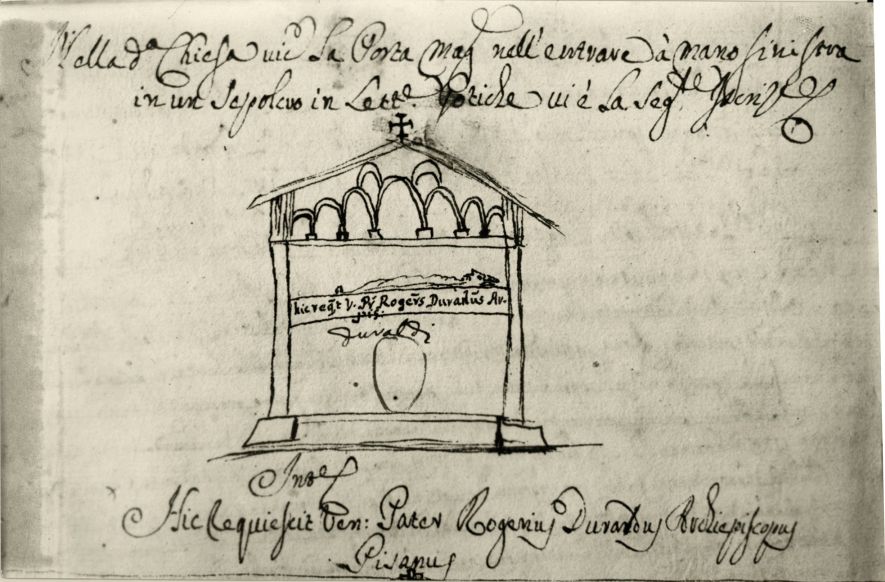 Nella d.ª Chiesa vic.º La Porta mag.e nell'entrare à mano sinistra
in un sepolcro in Lett.e Gotiche vi é La seg.te Inscriz.e
hic req.t V. Pr. Rogers Durādus Ar.
pis.
duraldi
Int.e
Hic Requiescit Ven: Pater Rogerius Durandus Archiepiscopus
Pisanus